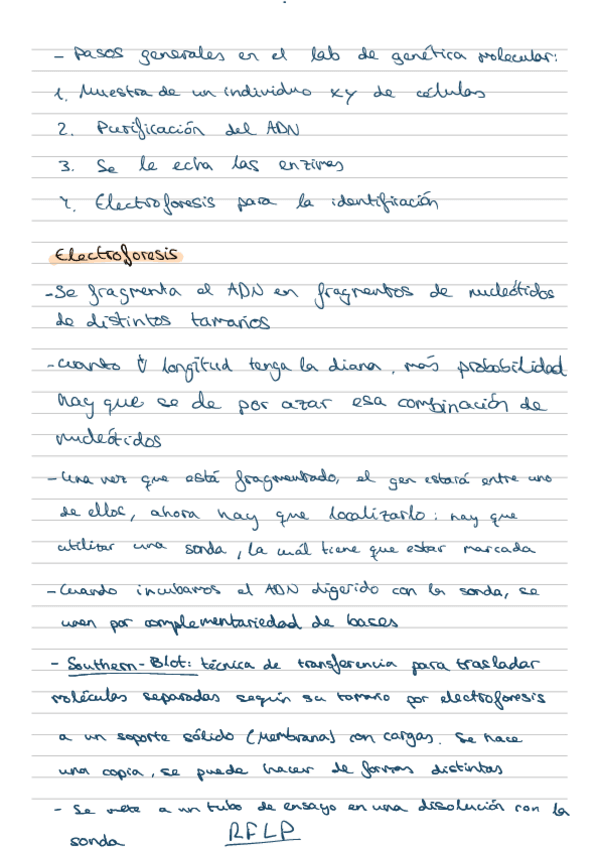 - Pasos generales en el lab de genética molecular:
1. Muestra de un individuo xy de células
2. Purificación del ADN
3. Se le echa las enzimas
4. Electroforesis para la identificación
Electroforesis
- Se fragmenta el ADN en fragmentos de nucleótidos
de distintos tamaños
- Cuanto ↓ longitud tenga la diana, más probabilidad
hay que se de por azar esa combinación de
nucleótidos
- Una vez que está fragmentado, el gen estará entre uno
de ellos, ahora hay que localizarlo: hay que
utilizar una sonda, la cuál tiene que estar marcada
- Cuando incubamos el ADN digerido con la sonda, se
unen por complementariedad de bases
- Southern-Blot: técnica de transferencia para trasladar
moléculas separadas según su tamaño por electroforesis
a un soporte sólido (Membrana) con cargas. Se hace
una copia, se puede hacer de formas distintas
- Se mete a un tubo de ensayo en una disolución con la
sonda RFLP